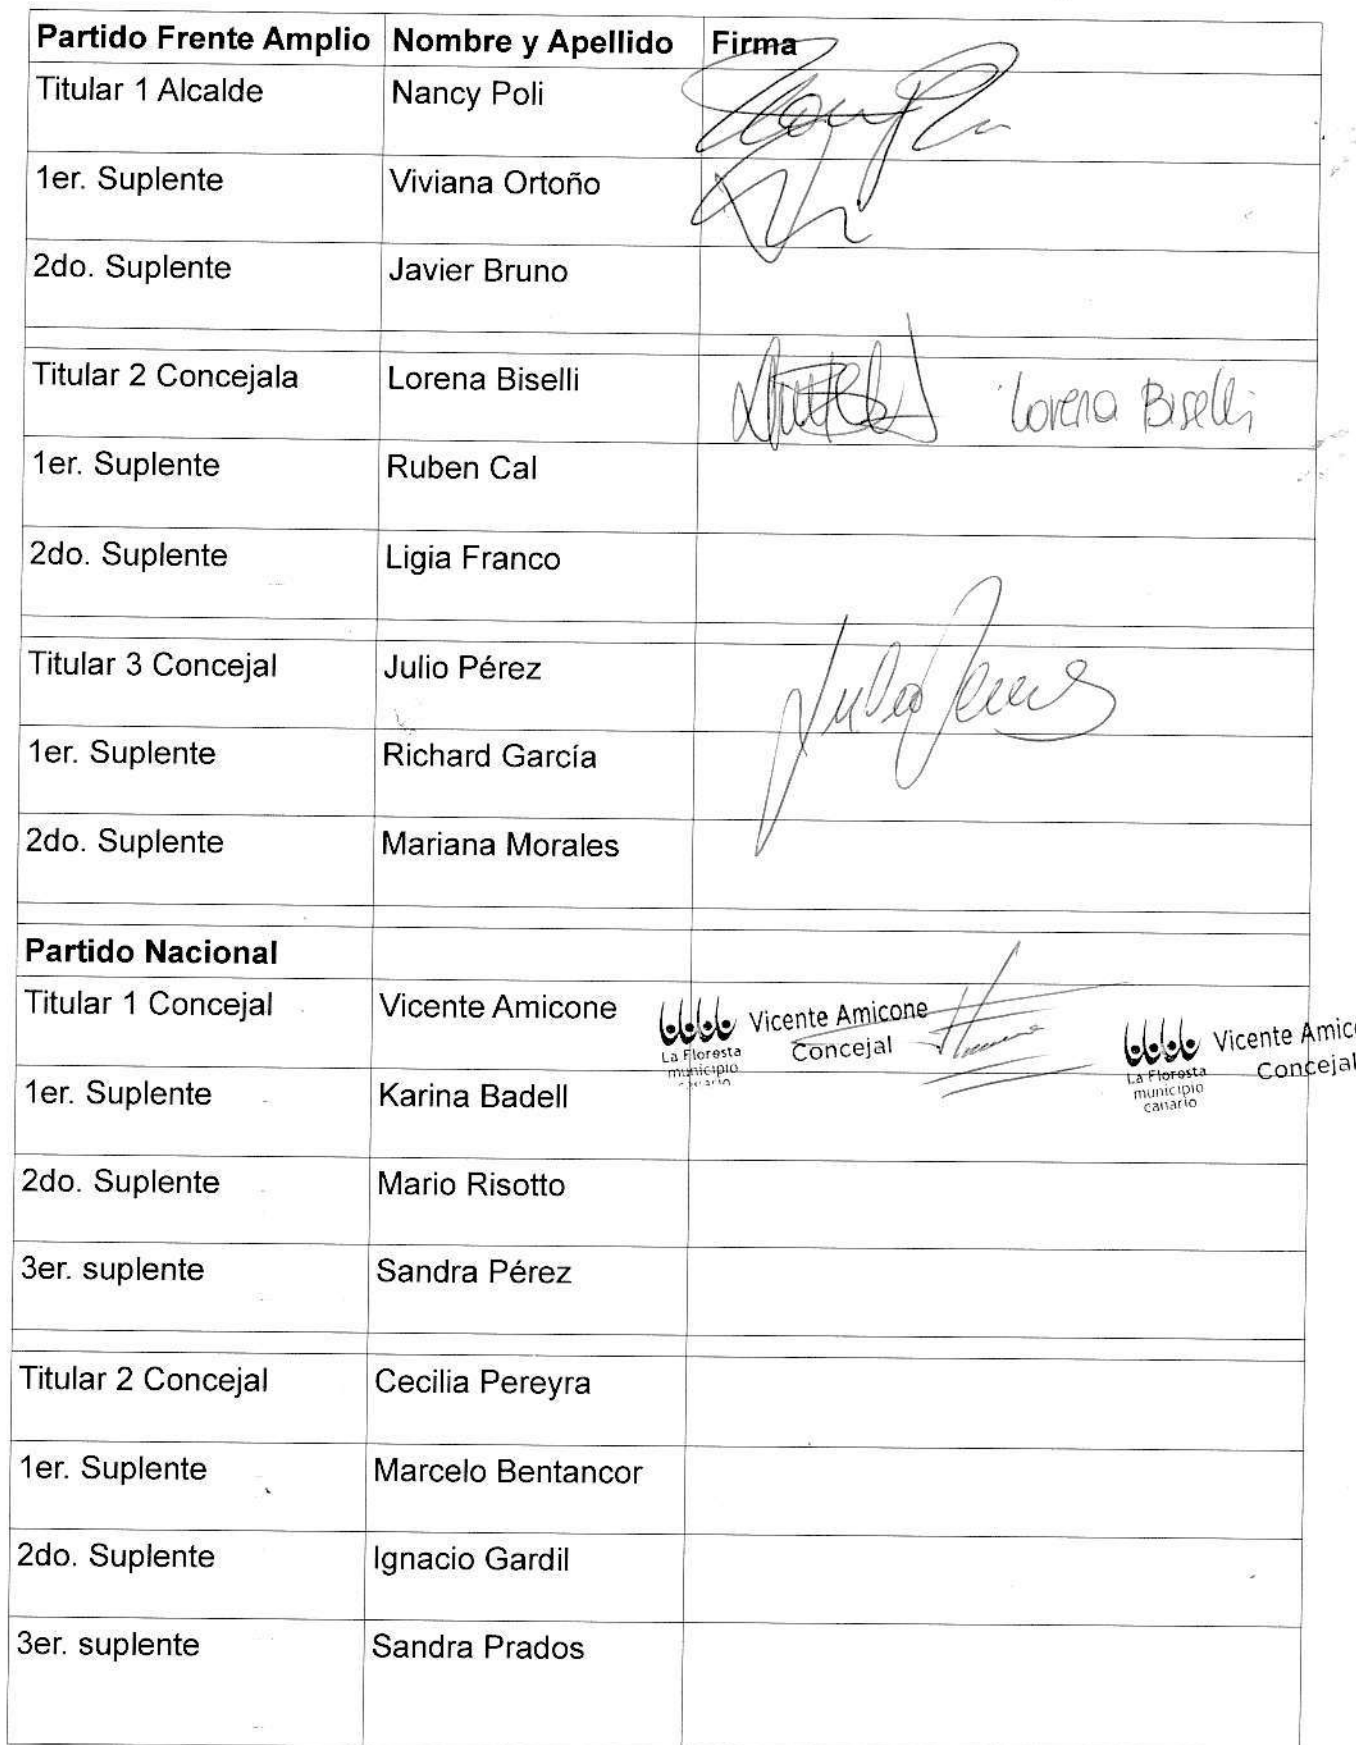 Partido Frente Amplio Nombre y Apellido Firma
Titular 1 Alcalde Nancy Poli
1er. Suplente Viviana Ortoño
2do. Suplente Javier Bruno
Titular 2 Concejala Lorena Biselli Lorena Biselli
1er. Suplente Ruben Cal
2do. Suplente Ligia Franco
Titular 3 Concejal Julio Pérez
1er. Suplente Richard García
2do. Suplente Mariana Morales
Partido Nacional
Titular 1 Concejal Vicente Amicone
Vicente Amicone
Concejal
La Floresta
municipio
canario
Vicente Amic
Concejal
La Floresta
municipio
canario
1er. Suplente Karina Badell
2do. Suplente Mario Risotto
3er. suplente Sandra Pérez
Titular 2 Concejal Cecilia Pereyra
1er. Suplente Marcelo Bentancor
2do. Suplente Ignacio Gardil
3er. suplente Sandra Prados